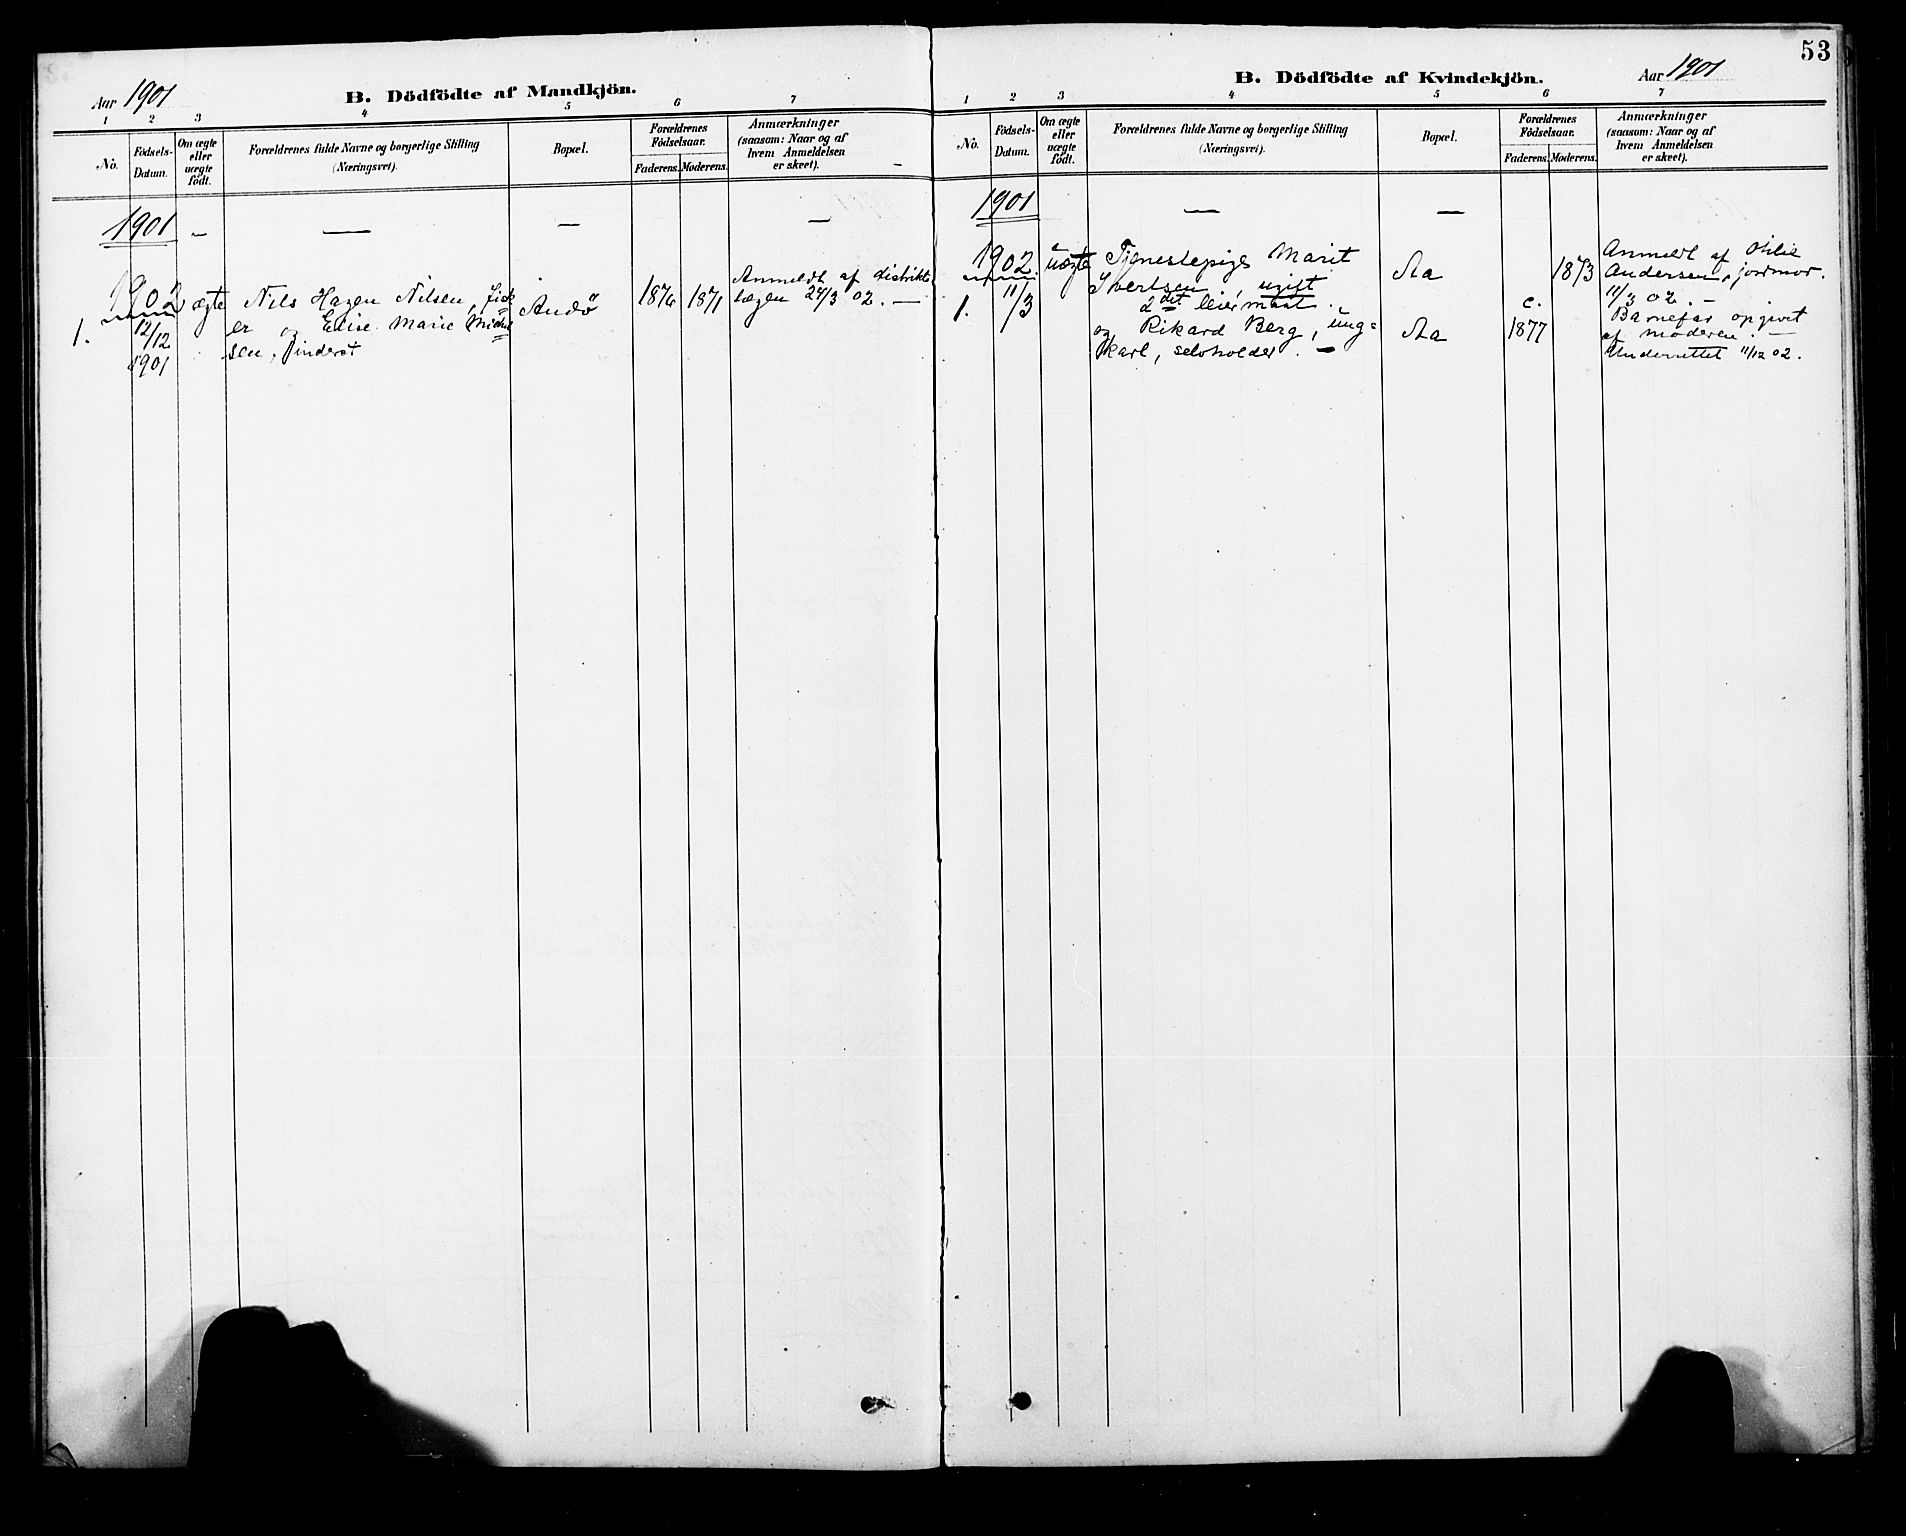 53
Aar 1901
B. Dödfödte af Mandkjön.
1 2 3 4 5 6 7
No.
Födsels-Datum.
Om ægte eller uægte födt.
Forældrenes fulde Navne og borgerlige Stilling
(Næringsvei).
Bopæl.
Forældrenes Födselsaar.
Faderens. Moderens.
Anmærkninger
(saasom: Naar og af
hvem Anmeldelsen
er skeet).
1901 — — — —
1902
1.
12/12
1901
ægte
Nils Hagen Nilsen, fisk
er og Elise Marie Mickel
sen,
Andö
1876 1871
Anmeldt af distrikts
lægen 24/3 02. —
B. Dödfödte af Kvindekjön.
Aar 1901
1 2 3 4 5 6 7
No.
Födsels-Datum.
Om ægte eller uægte födt.
Forældrenes fulde Navne og borgerlige Stilling
(Næringsvei).
Bopæl.
Forældrenes Födselsaar.
Faderens. Moderens.
Anmærkninger
(saasom: Naar og af
hvem Anmeldelsen
er skeet).
1901 — —
1902.
1.
11/3
uægte
Tjenestepige Marit
Ivertsen, ugift
2det leiermaal.
og Rikard Berg, ung=
karl, selvholder. —
Aa
Aa
c.
1877
1873
Anmeldt af
Andersen, jormor.
11/3 02. —
Barnefar opgivet
af moderen. —
Underrettet 11/12 02.